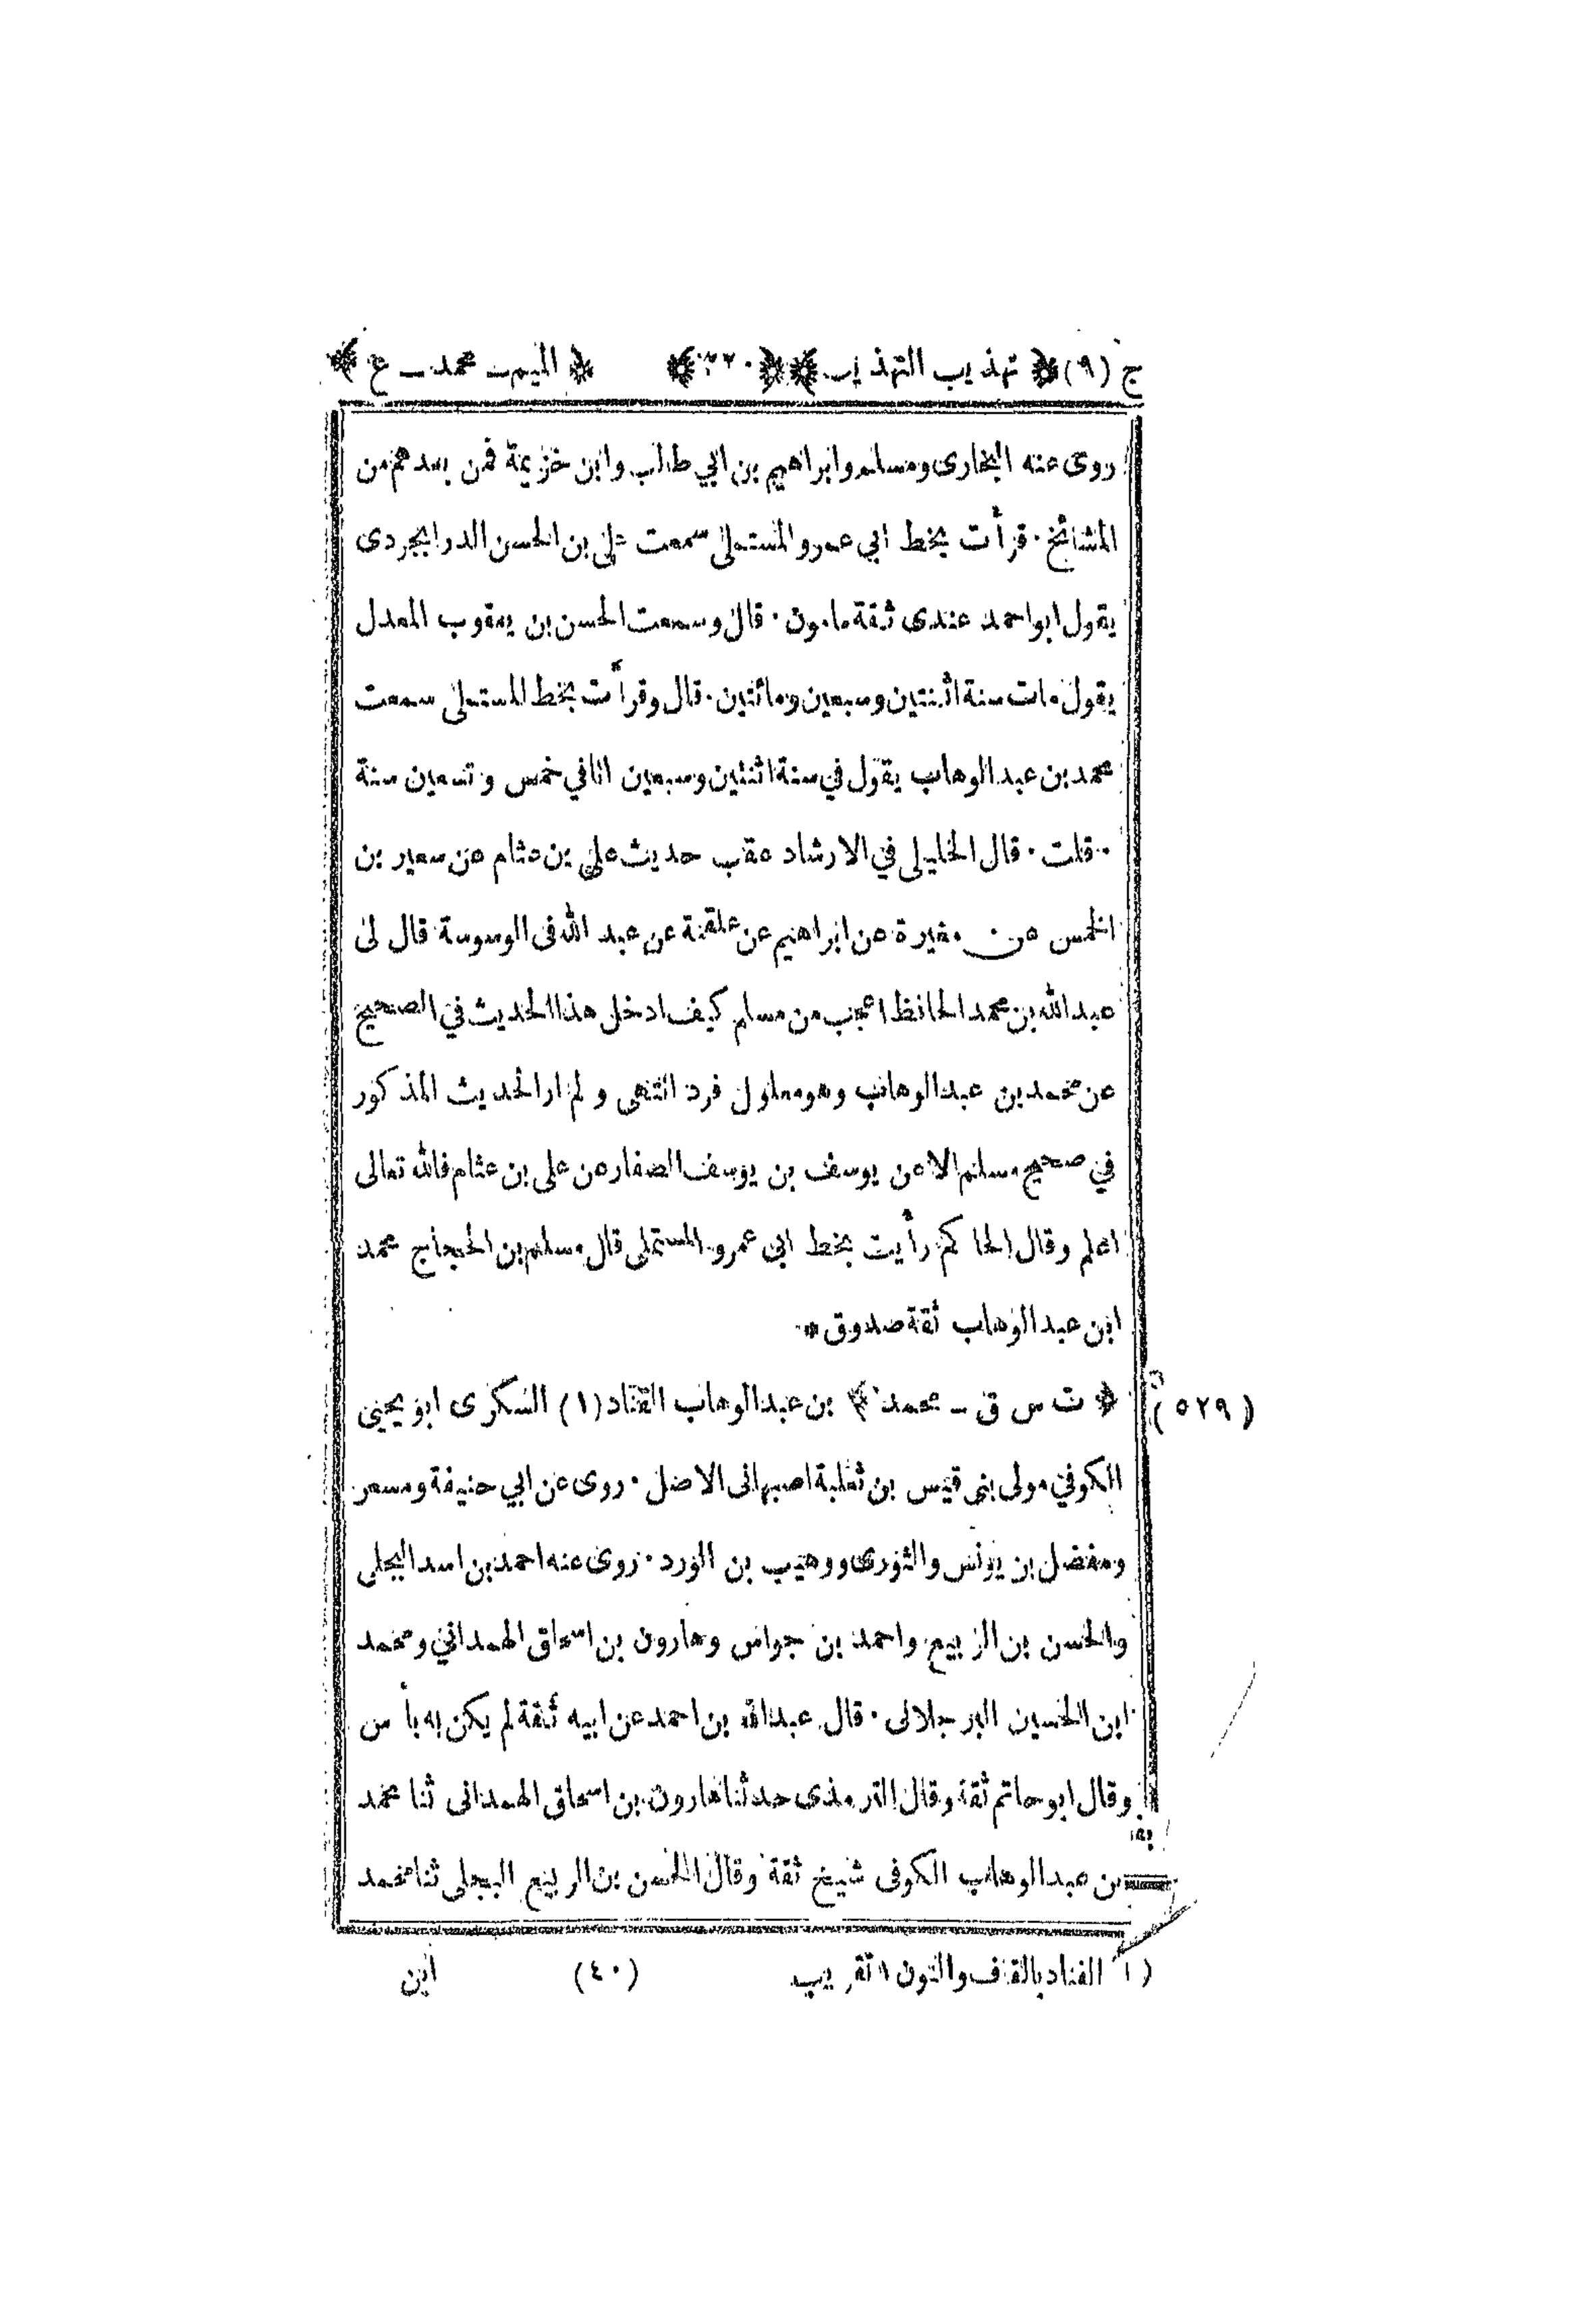 ج (٩) ﴿ تهذيب التهذيب ﴾ ﴿ ٣٢٠ ﴾ ﴿ الميم ـ محمد ـ ع ﴾
روى عنه البخارى ومسلم وابراهيم بن ابي طالب وابن خزيمة فمن بعدهم من
المشائخ · قرأت بخط ابي عمرو المستملى سمعت على بن الحسن الدرابجردى
يقول ابو احمد عندى ثقة مامون · قال وسمعت الحسن بن يعقوب المعدل
يقول مات سنة اثنتين وسبعين ومائتين · قال وقرأت بخط المستملى سمعت
محمد بن عبد الوهاب يقول في سنة اثنتين وسبعين انا في خمس وتسعين سنة
· قلت · قال الخليلى في الارشاد عقب حديث على بن عثام عن سعير بن
الخمس عن مغيرة عن ابراهيم عن علقمة عن عبد الله فى الوسوسة قال لى
عبد الله بن محمد الحافظ اعجب من مسلم كيف ادخل هذا الحديث في الصحيح
عن محمد بن عبد الوهاب وهو معلول فرد انتهى ولم ار الحديث المذكور
في صحيح مسلم الا عن يوسف بن يوسف الصفار عن على بن عثام فالله تعالى
اعلم وقال الحاكم رأيت بخط ابى عمرو المستملى قال مسلم بن الحجاج محمد
ابن عبد الوهاب ثقة صدوق *
﴿ ت س ق ـ محمد ﴾ بن عبد الوهاب القناد (١) السكرى ابو يحيى
(٥٢٩)
الكوفي مولى بنى قيس بن ثعلبة اصبهانى الاصل · روى عن ابي حنيفة ومسعر
ومفضل بن يونس والثورى ووهيب بن الورد · روى عنه احمد بن اسد البجلى
والحسن بن الربيع واحمد بن جواس وهارون بن اسحاق الهمدانى ومحمد
ابن الحسين البرجلانى · قال عبد الله بن احمد عن ابيه ثقة لم يكن به بأس
وقال ابو حاتم ثقة وقال الترمذى حدثنا هارون بن اسحاق الهمدانى ثنا محمد
بن عبد الوهاب الكوفى شيخ ثقة وقال الحسن بن الربيع البجلى ثنا محمد
(١ القناد بالقاف والنون ١ تقريب (٤٠) ابن